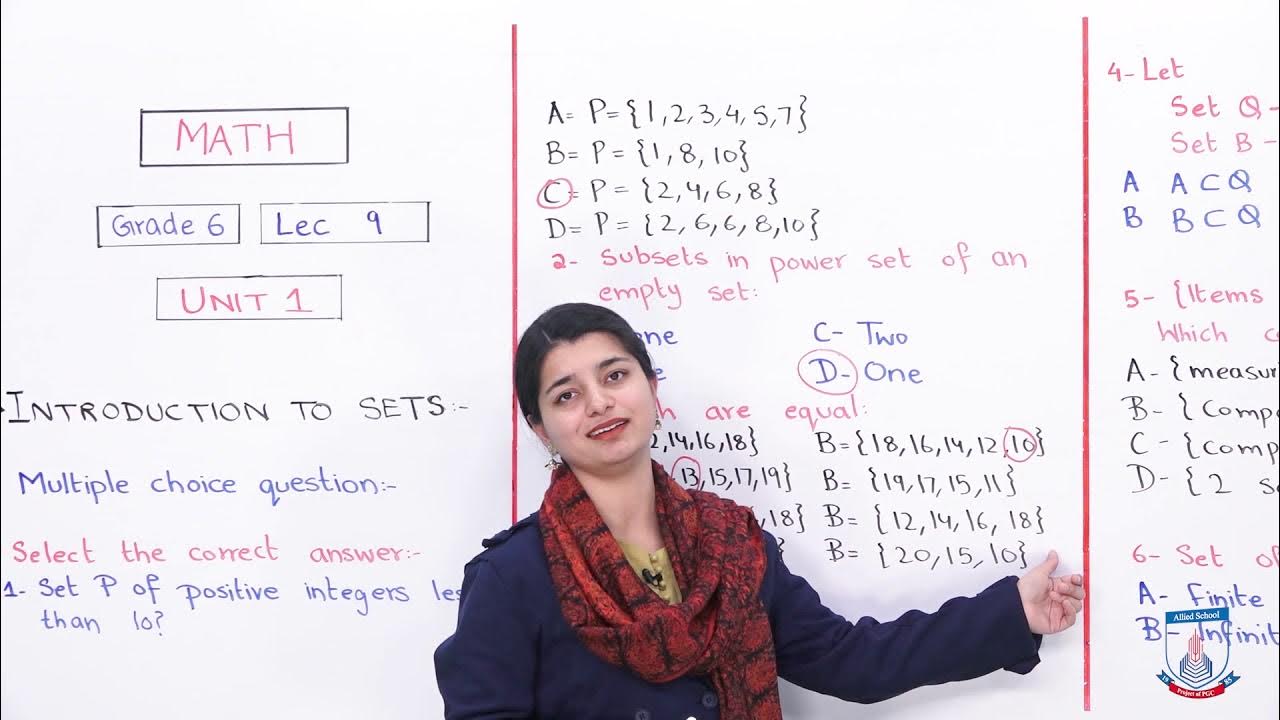 MATH
Grade 6
Lec 9
UNIT 1
INTRODUCTION TO SETS:-
Multiple choice question:-
Select the correct answer:-
1- Set P of positive integers
than 10?
A= P= {1,2,3,4,5,7}
B= P= {1, 8, 10}
C= P = {2,4,6,8}
D= P= {2, 6, 6, 8,10}
2- Subsets in power set of an
empty set:
C- Two
D- One
are equal:
14,16,18} B={18,16,14,12,10}
13,15,17,19} B= {19,17,15,11}
18} B= {12,14,16, 18}
B= {20,15,10}
4- Let
Set Q-
Set B-
A A⊂Q
B B⊂Q
5- {Items
Which
A- {
B- {
C- {
D- {2
6- Set
A- Finite
B-
Allied School
19 85
Project of PGC